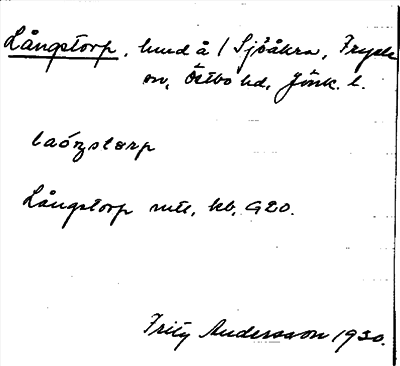 Långstorp, hund å / Sjöåkra, Tryd
sn, Östbo hd, Jönk. l.
laóŋstərp
Långstorp mtl, kb, G20.
Frity Andersson 1930.